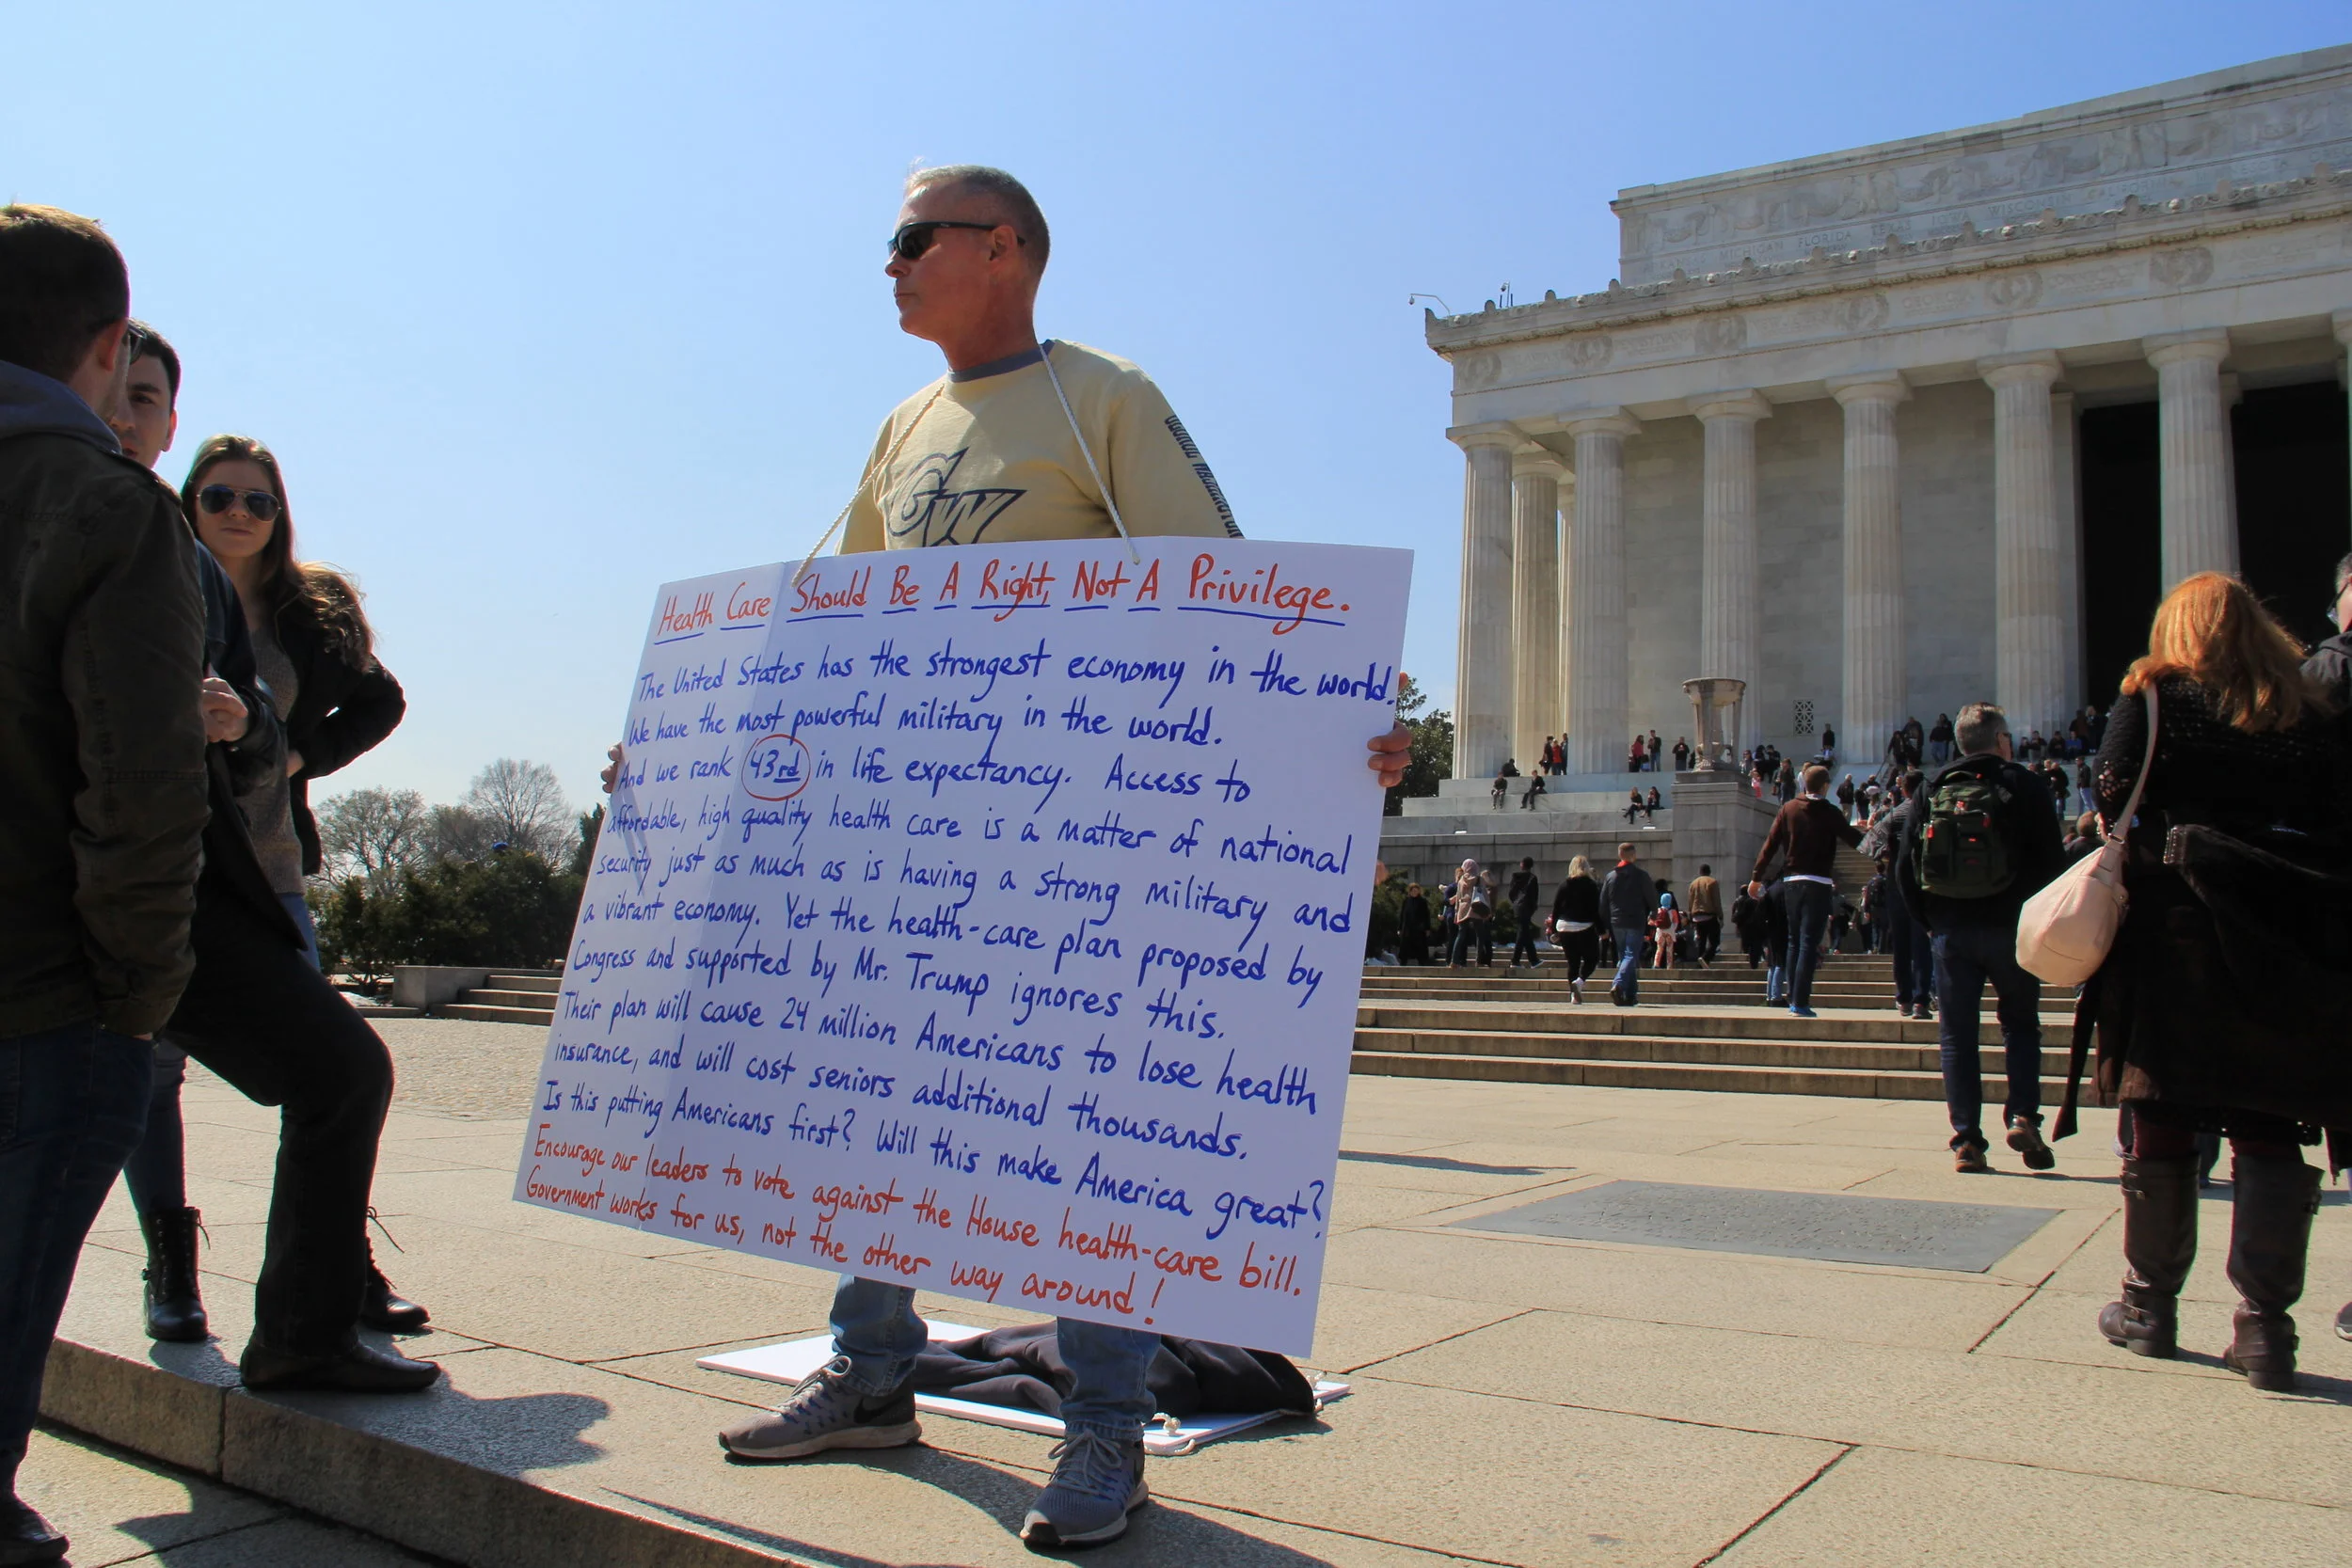 IOWA WISCONSIN CALIFORNIA
MICHIGAN FLORIDA TEXAS
GW
GEORGE WASHINGTON
Health Care Should Be A Right, Not A Privilege.
The United States has the strongest economy in the world.
We have the most powerful military in the world.
And we rank 43rd in life expectancy. Access to
affordable, high quality health care is a matter of national
security just as much as is having a strong military and
a vibrant economy. Yet the health-care plan proposed by
Congress and supported by Mr. Trump ignores this.
Their plan will cause 24 million Americans to lose health
insurance, and will cost seniors additional thousands.
Is this putting Americans first? Will this make America great?
Encourage our leaders to vote against the House health-care bill.
Government works for us, not the other way around!